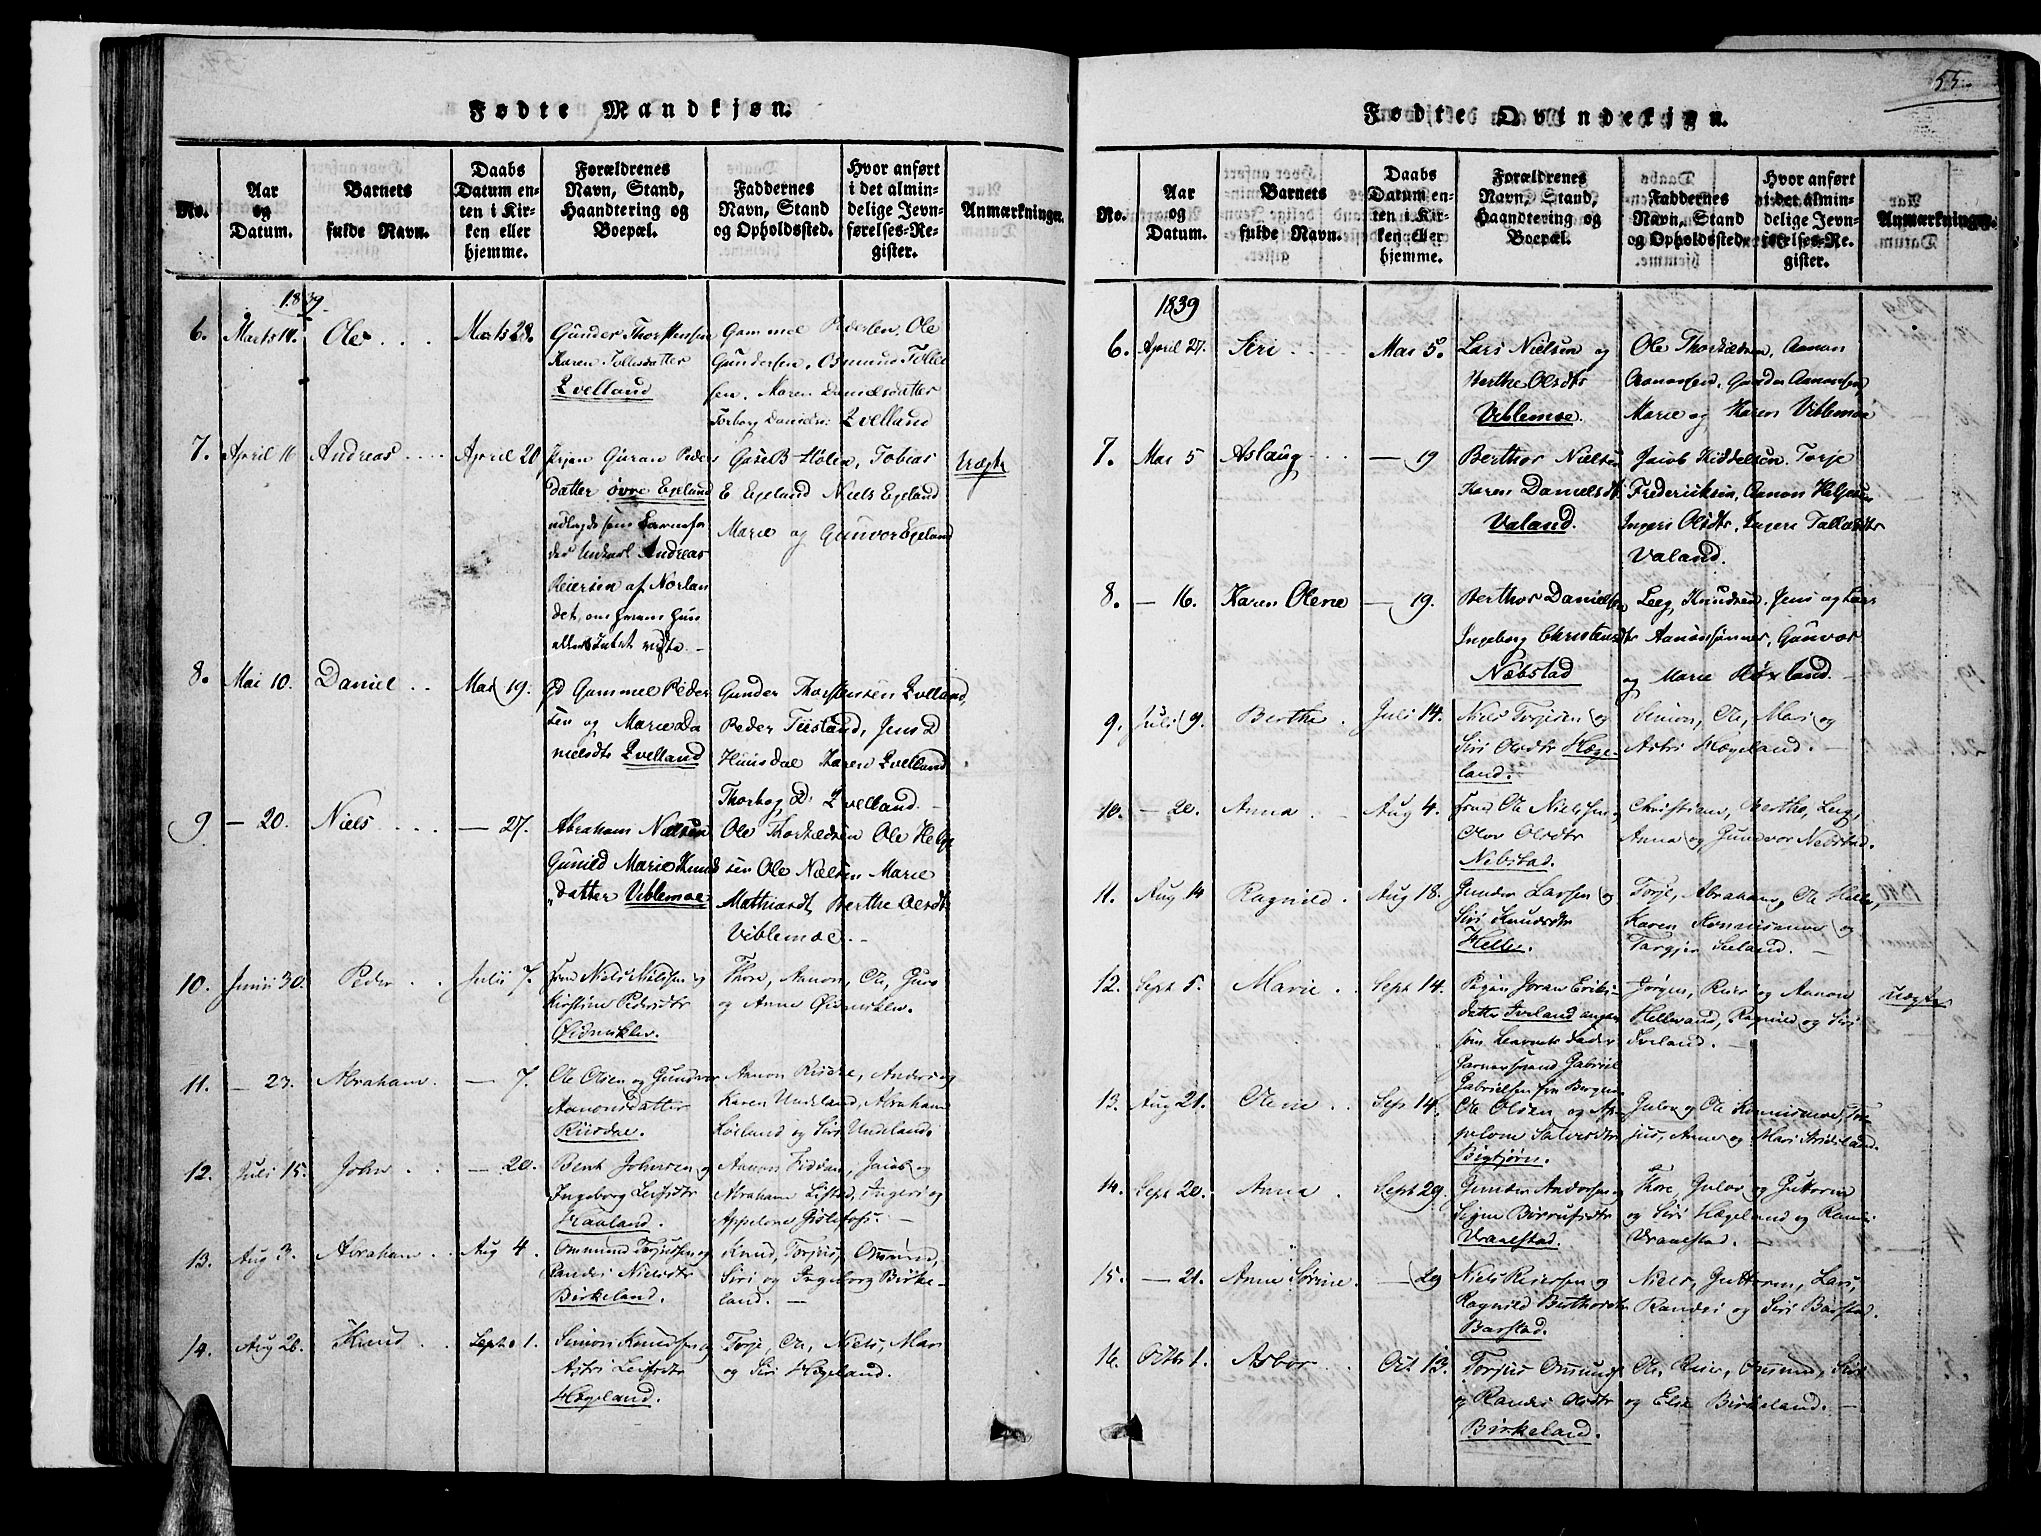 55.
Fødte Mandkjøn.
No.
Aar
og
Datum.
Barnets
fulde Navn.
Daabs
Datum en-
ten i Kir-
ken eller
hjemme.
Forældrenes
Navn, Stand,
Haandtering og
Boepæl.
Faddernes
Navn, Stand
og Opholdssted.
Hvor anført
i det almin-
delige Jevn-
førelses-Re-
gister.
Anmærkninger.
1839.
6. Marts 14. Ole Marts 28.
Gunder Thorstensen
Karen Tollesdatter
Qvelland
Gammel Pedersen, Ole
Gundersen, Osmund Tolle
sen, Maren Danielsdatter
Torborg Danielsd: Qvelland
7. April 11 Andreas April 20
Pigen Guran Peders
datter øvre Egeland
udlagde som Barnefa
der Unkarl Andreas
Reiersen af Norlan
det, om hvem hun
ellers Intet vidste.
E Egeland Niels Egeland
Marie og Gunvor Egeland
Uægte
8. Mai 10. Daniel Mai 19.
Gammel Peder
sen og Marie Da
nielsdtr Qvelland
Gunder Thorstensen Qvelland,
Peder Teistand, Jens D
Hunsdal Karen Qvelland
Thorbog D: Qvelland.
9 — 20. Niels — 27.
Abraham Nielsen
Gunild Marie Knud
datter Viblemoe
Ole Thorkædsen Ole Helge
sen Ole Nielsen Marie
Mathiasdt, Berthe Olesdtr
Viblemoe.
10. Junii 30. Peder Julii 7.
Niels Nielsen og
Kirstine Pedersdtr
Øidneklev.
Thore, Aanon, Ole, Guro
og Anne Øidneklev.
11. — 23. Abraham. — 7.
Ole Olsen og Gundvor
Aanonsdatter
Riisdae.
Aanon Riisdae, Anders og
Karen Undeland, Abraham
Løiland og Siri Undeland.
12. Juli 15. John — 20.
Bent Johnsen og
Ingeborg Leifsdtr
Hauland.
Aanon Fiddan, Jacob og
Abraham Lifsted, Ingeri og
Appelone Gislefoss.
13. Aug 3. Abraham Aug 4.
Ommund Torjussen og
Randei Nielsdtr
Birkeland.
Knud, Torjus, Ommund,
Siri og Ingeborg Birke-
land.
14. Aug 26. Knud Sept. 1.
Simon Knudsen og
Astri Leifsdtr
Hægeland.
Torje, Ole, Niels, Mari
og Siri Hægeland.
Fødte Qvindekjøn.
No.
Aar
og
Datum.
Barnets
fulde Navn.
Daabs
Datum en-
ten i Kir-
ken eller
hjemme.
Forældrenes
Navn, Stand,
Haandtering og
Boepæl.
Faddernes
Navn, Stand
og Opholdssted.
Hvor anført
i det almin-
delige Jevn-
førelses-Re-
gister.
Anmærkninger.
1839
6. April 27. Siri Mai 5.
Lars Nielsen og
Berthe Olsdtr
Viblemoe.
Ole Thorkædsen, Aanon
Aanonsen, Gunder Aanonsen,
Marie og Karen Viblemoe
7. Mai 5 Aslaug — 19
Berthor Nielsen
Karen Danielsdt
Valand.
Jacob Kiddelsen, Torje
Frederiksen, Aanon Helgesen
Ingeri Olsdtr, Ingeri Tallaksdtr
Valand.
8. — 16. Karen Olene — 19.
Berthor Danielsen
Ingeborg Christensdtr
Næbstad
Leeg, Knudsen, Jens og Lars
Aanonsønner, Gunvor
og Marie Høxland.
9. Juli 9. Berthe Juli 14.
Niels Torjesen og
Siri Olsdtr Hæge-
land.
Simon, Ole, Mari og
Astri Hægeland.
10. — 20. Anna Aug 4.
Ole Nielsen og
Olov Olsdtr
Nebstad.
Christian, Berthe, Leeg,
Anna og Gundvor Nebstad.
11. Aug 14 Ragnild Aug 18.
Gunder Larsen og
Siri Knudsdtr
Heller.
Torje, Abraham, Ole Heller,
Karen Konnismoe og
Targjer Seeland.
12. Sept 5. Marie Sept 14.
Pigen Joran Eriks-
datter Iveland angav
som Barnets Fader
Gabriel
Gabrielsen fra Bergen
Jørgen, Reier og Aanon
Hellevand, Ragnild og Siri
Iveland.
Uægte.
13. Aug 21. Olene Sep 14.
Ole Olsen og Ap-
pelone Salvesdtr
Bigtjørn.
Gulov og Ole Konnismoe, Tor-
jus, Anne og Mari Strisland.
14. Sept 20. Anna Sept 29.
Gunder Andersen og
Signe Bernufsdtr
Vraalstad.
Thore, Gulov og Guttorm
og Siri Hægeland og Randi
Vraalstad.
15. — 21. Anne Sørine — 29
Niels Reiersen og
Ragnild Berthorsdtr
Barstad.
Niels, Guttorm, Lars,
Randei og Siri Barstad.
16. Octbr 1. Asbor Oct. 13.
Torjus Omunds
og Randei Olsdtr
Birkeland.
Ole, Reier, Omund, Siri
og Else Birkeland.